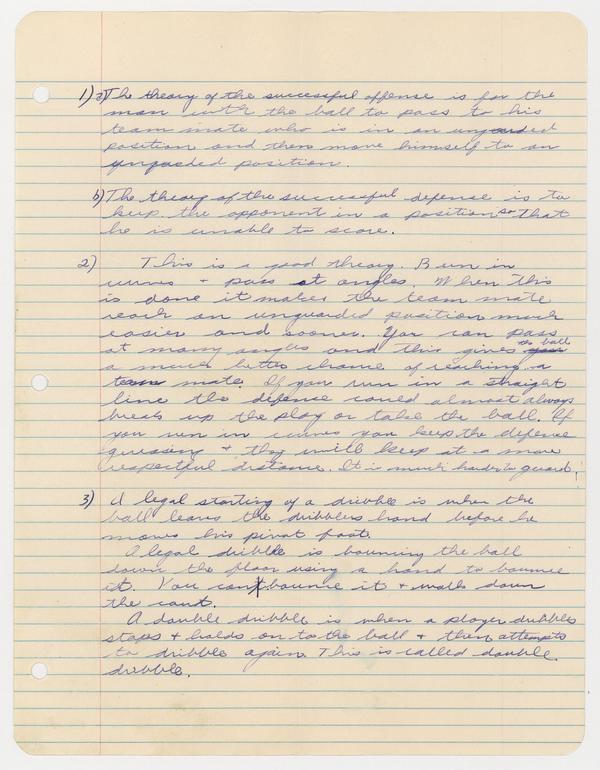 1) a) The theory of the successful offense is for the
man with the ball to pass to his
team mate who is in an unguarded
position and then move himself to an
unguarded position.
b) The theory of the successful defense is to
keep the opponent in a position so that
he is unable to score.
2) This is a good theory. Run in
curves + pass at angles. When this
is done it makes the team mate
reach an unguarded position much
easier and sooner. You can pass
at many angles and this gives the ball
a much better chance of reaching a
team mate. If you run in a straight
line the defense could almost always
break up the play or take the ball. If
you run in curves you keep the defense
guessing + they will keep at a more
respectful distance. It is much harder to guard.
3) A legal starting of a dribble is when the
ball leaves the dribblers hand before he
moves his pivot foot.
A legal dribble is bouncing the ball
down the floor using a hand to bounce
it. You can't bounce it + walk down
the court.
A double dribble is when a player dribbles
stops + holds on to the ball + then attempts
to dribble again. This is called double
dribble.